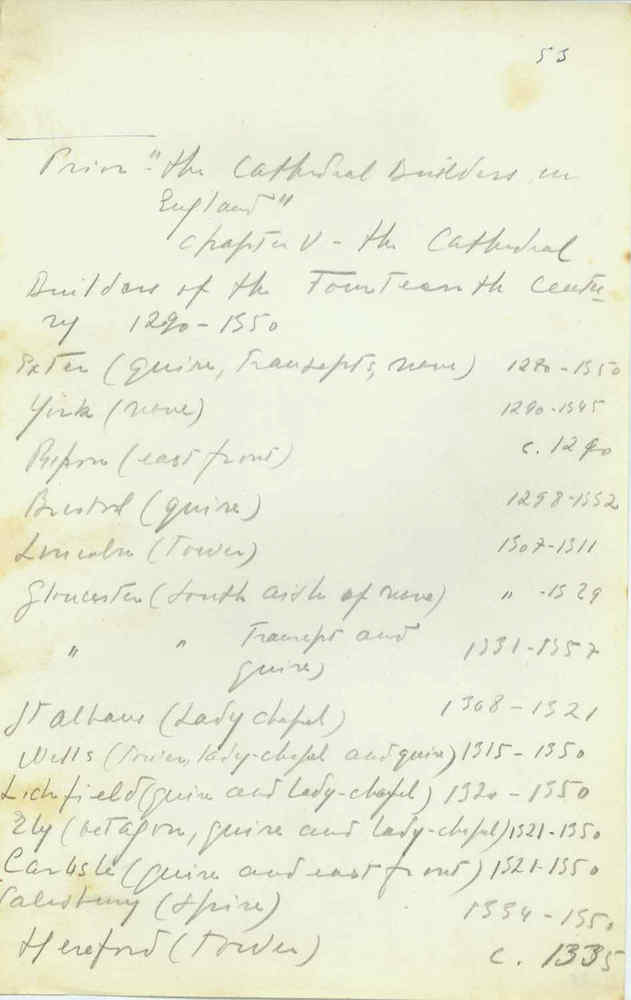 53
Prior "the Cathedral Builders in
England"
chapter V - the Cathedral
Builders of the Fourteenth Centu-
ry 1290-1350
Exeter (quire, transepts, nave) 1280-1350
York (nave) 1290-1345
Ripon (east front) c. 1290
Bristol (quire) 1298-1332
Lincoln (tower) 1307-1311
Gloucester (south aisle of nave) " -1329
" " Transept and 1331-1357
quire)
St Albans (Lady chapel) 1308-1321
Wells (tower, lady-chapel and quire) 1315-1350
Lichfield (quire and lady-chapel) 1320-1350
Ely (octagon, quire and lady-chapel) 1321-1350
Carlisle (quire and east front) 1321-1350
Salisbury (spire) 1334-1350
Hereford (tower) c. 1335